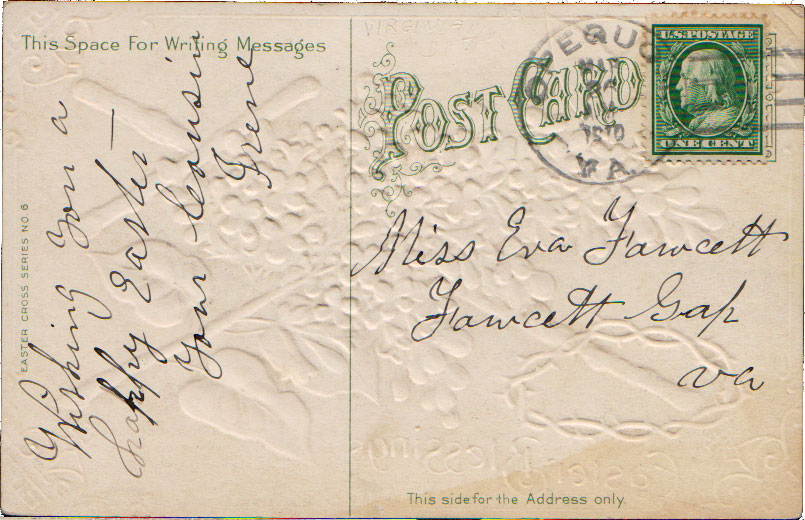 This Space For Writing Messages
Wishing you a
happy Easter —
Your Cousin
Irene
EASTER CROSS SERIES NO 6
VIRGINIA
POST CARD
VA.
1910
U.S. POSTAGE
ONE CENT
Miss Eva Fawcett
Fawcett Gap
Va
This side for the Address only.